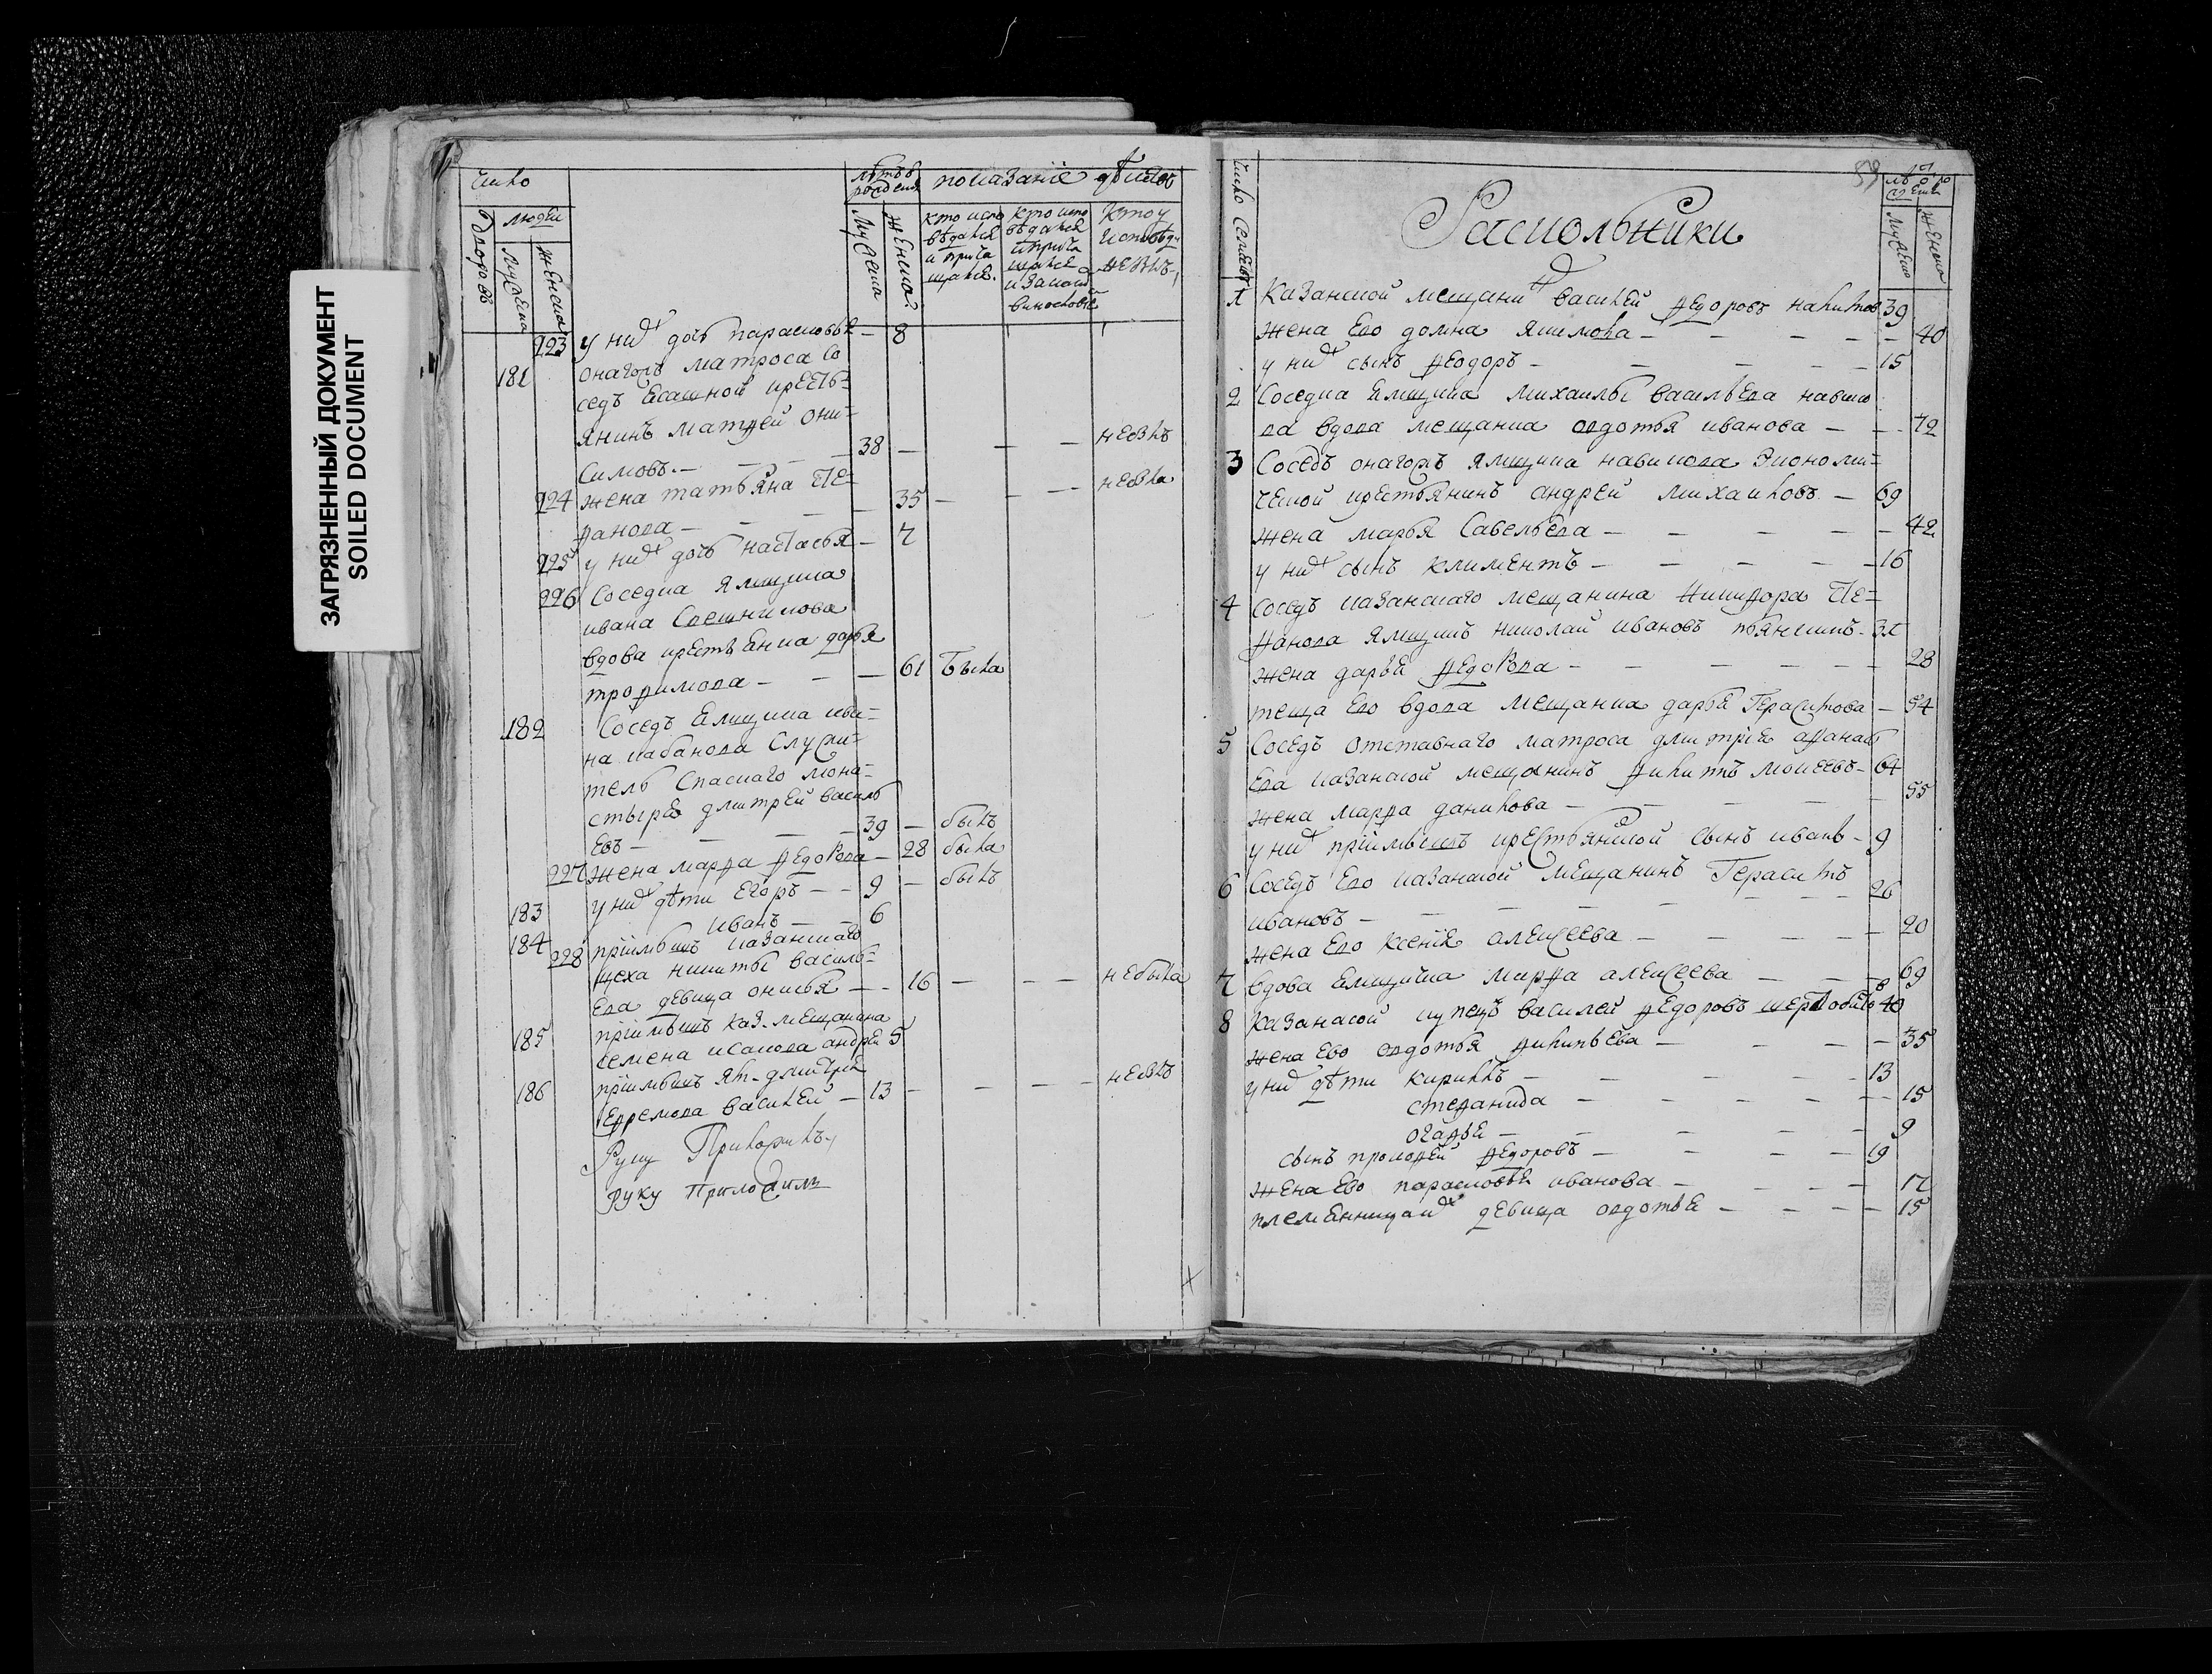 ЗАГРЯЗНЕННЫЙ ДОКУМЕНТ
SOILED DOCUMENT
число
людей
дворовъ
женска
показание
223 у них дочь парасковья — 8
181 онагожъ матроса со
седъ ясашной кресть=
янинъ матфей они=
симовъ — 38 — небылъ
224 жена татьяна сте=
фанова — 35 — небыла
225 у них дочь настасья — 7
226 Соседка ямщика
ивана
вдова крестьянка дарья
трофимова — 61 была
182 Соседъ ямщика ива=
на кабанова служи=
тель спаскаго мона=
стыря дмитрей василь
евъ — 39 — былъ
227 жена марфа федорова — 28 была
183 у них дѣти егоръ — 9 — былъ
184 иванъ — 6
228 приимышъ казанскаго
цеха никиты василь=
ева девица — 16 — небыла
185 приимышъ каз. мещанина
семена исакова андрей 5
186 приимышъ дмитрея
ефремова василей — 13 — небылъ
руку приложилъ
59
число семей
Раскольники
1 Казанской мещанин василей федоровъ 39
жена его домна якимова — 40
у них сынъ феодоръ — 15
2 Соседка ямщика михаилы васильева
ва вдова мещанка авдотья иванова — 72
3 Соседъ онагожъ ямщика экономи=
ческой крестьянинъ андрей михаиловъ — 69
жена марья савельева — 42
у них сынъ климентъ — 16
4 соседъ казанскаго мещанина никифора сте=
фанова ямщикъ николай ивановъ 31
жена дарья федорова — 28
теща его вдова мещанка дарья герасимова — 54
5 Соседъ отставнаго матроса дмитрия афанась
ева казанской мещанинъ филипъ моисеевъ — 64
жена марфа данилова — 55
у них приимышъ крестьянской сынъ иванъ — 9
6 Соседъ его казанской мещанинъ герасимъ
ивановъ — 26
жена его ксения алексеева — 20
7 вдова ямщика марфа алексеева — 69
8 казанской купецъ василей федоровъ 40
жена ево авдотья филипьева — 35
у них дѣти кирилъ — 13
стефанида — 15
агафья — 9
сынъ прокофей федоровъ — 19
жена ево парасковья иванова — 17
племянница их девица авдотья — 15